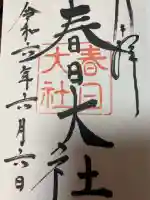 奉拝
春日大社
春日
大社
令和年六月六日